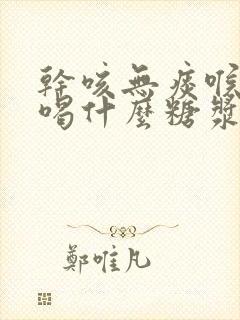 幹咳無痰喉
喝什麼糖漿
鄭唯凡